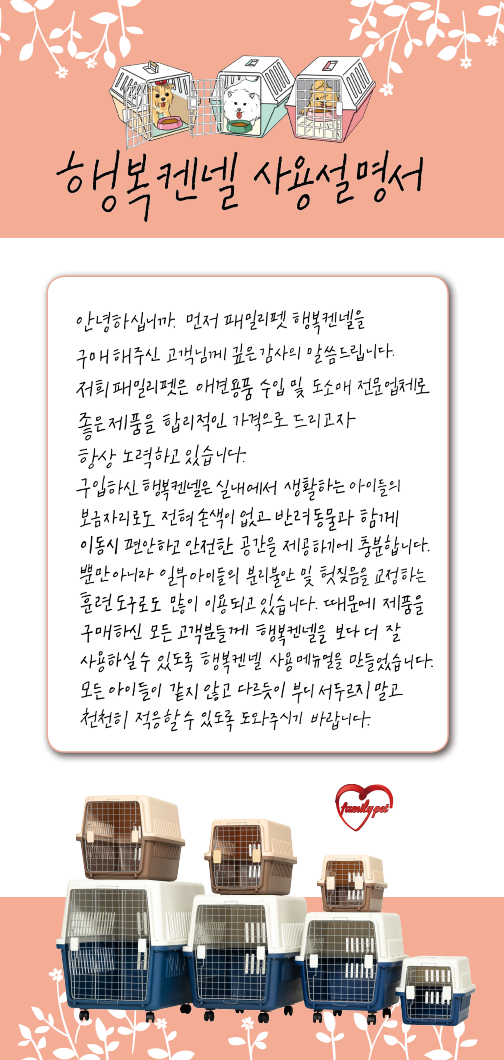 행복켄넬 사용설명서
안녕하십니까. 먼저 패밀리펫 행복켄넬을
구매해주신 고객님께 깊은 감사의 말씀드립니다.
저희 패밀리펫은 애견용품 수입 및 도소매 전문업체로
좋은 제품을 합리적인 가격으로 드리고자
항상 노력하고 있습니다.
구입하신 행복켄넬은 실내에서 생활하는 아이들의
보금자리로도 전혀 손색이 없고 반려동물과 함께
이동시 편안하고 안전한 공간을 제공하기에 충분합니다.
뿐만 아니라 일부 아이들의 분리불안 및 헛짖음을 교정하는
훈련 도구로도 많이 이용되고 있습니다. 때문에 제품을
구매하신 모든 고객분들께 행복켄넬을 보다 더 잘
사용하실 수 있도록 행복켄넬 사용 메뉴얼을 만들었습니다.
모든 아이들이 같지 않고 다르듯이 부디 서두르지 말고
천천히 적응할 수 있도록 도와주시기 바랍니다.
family pet